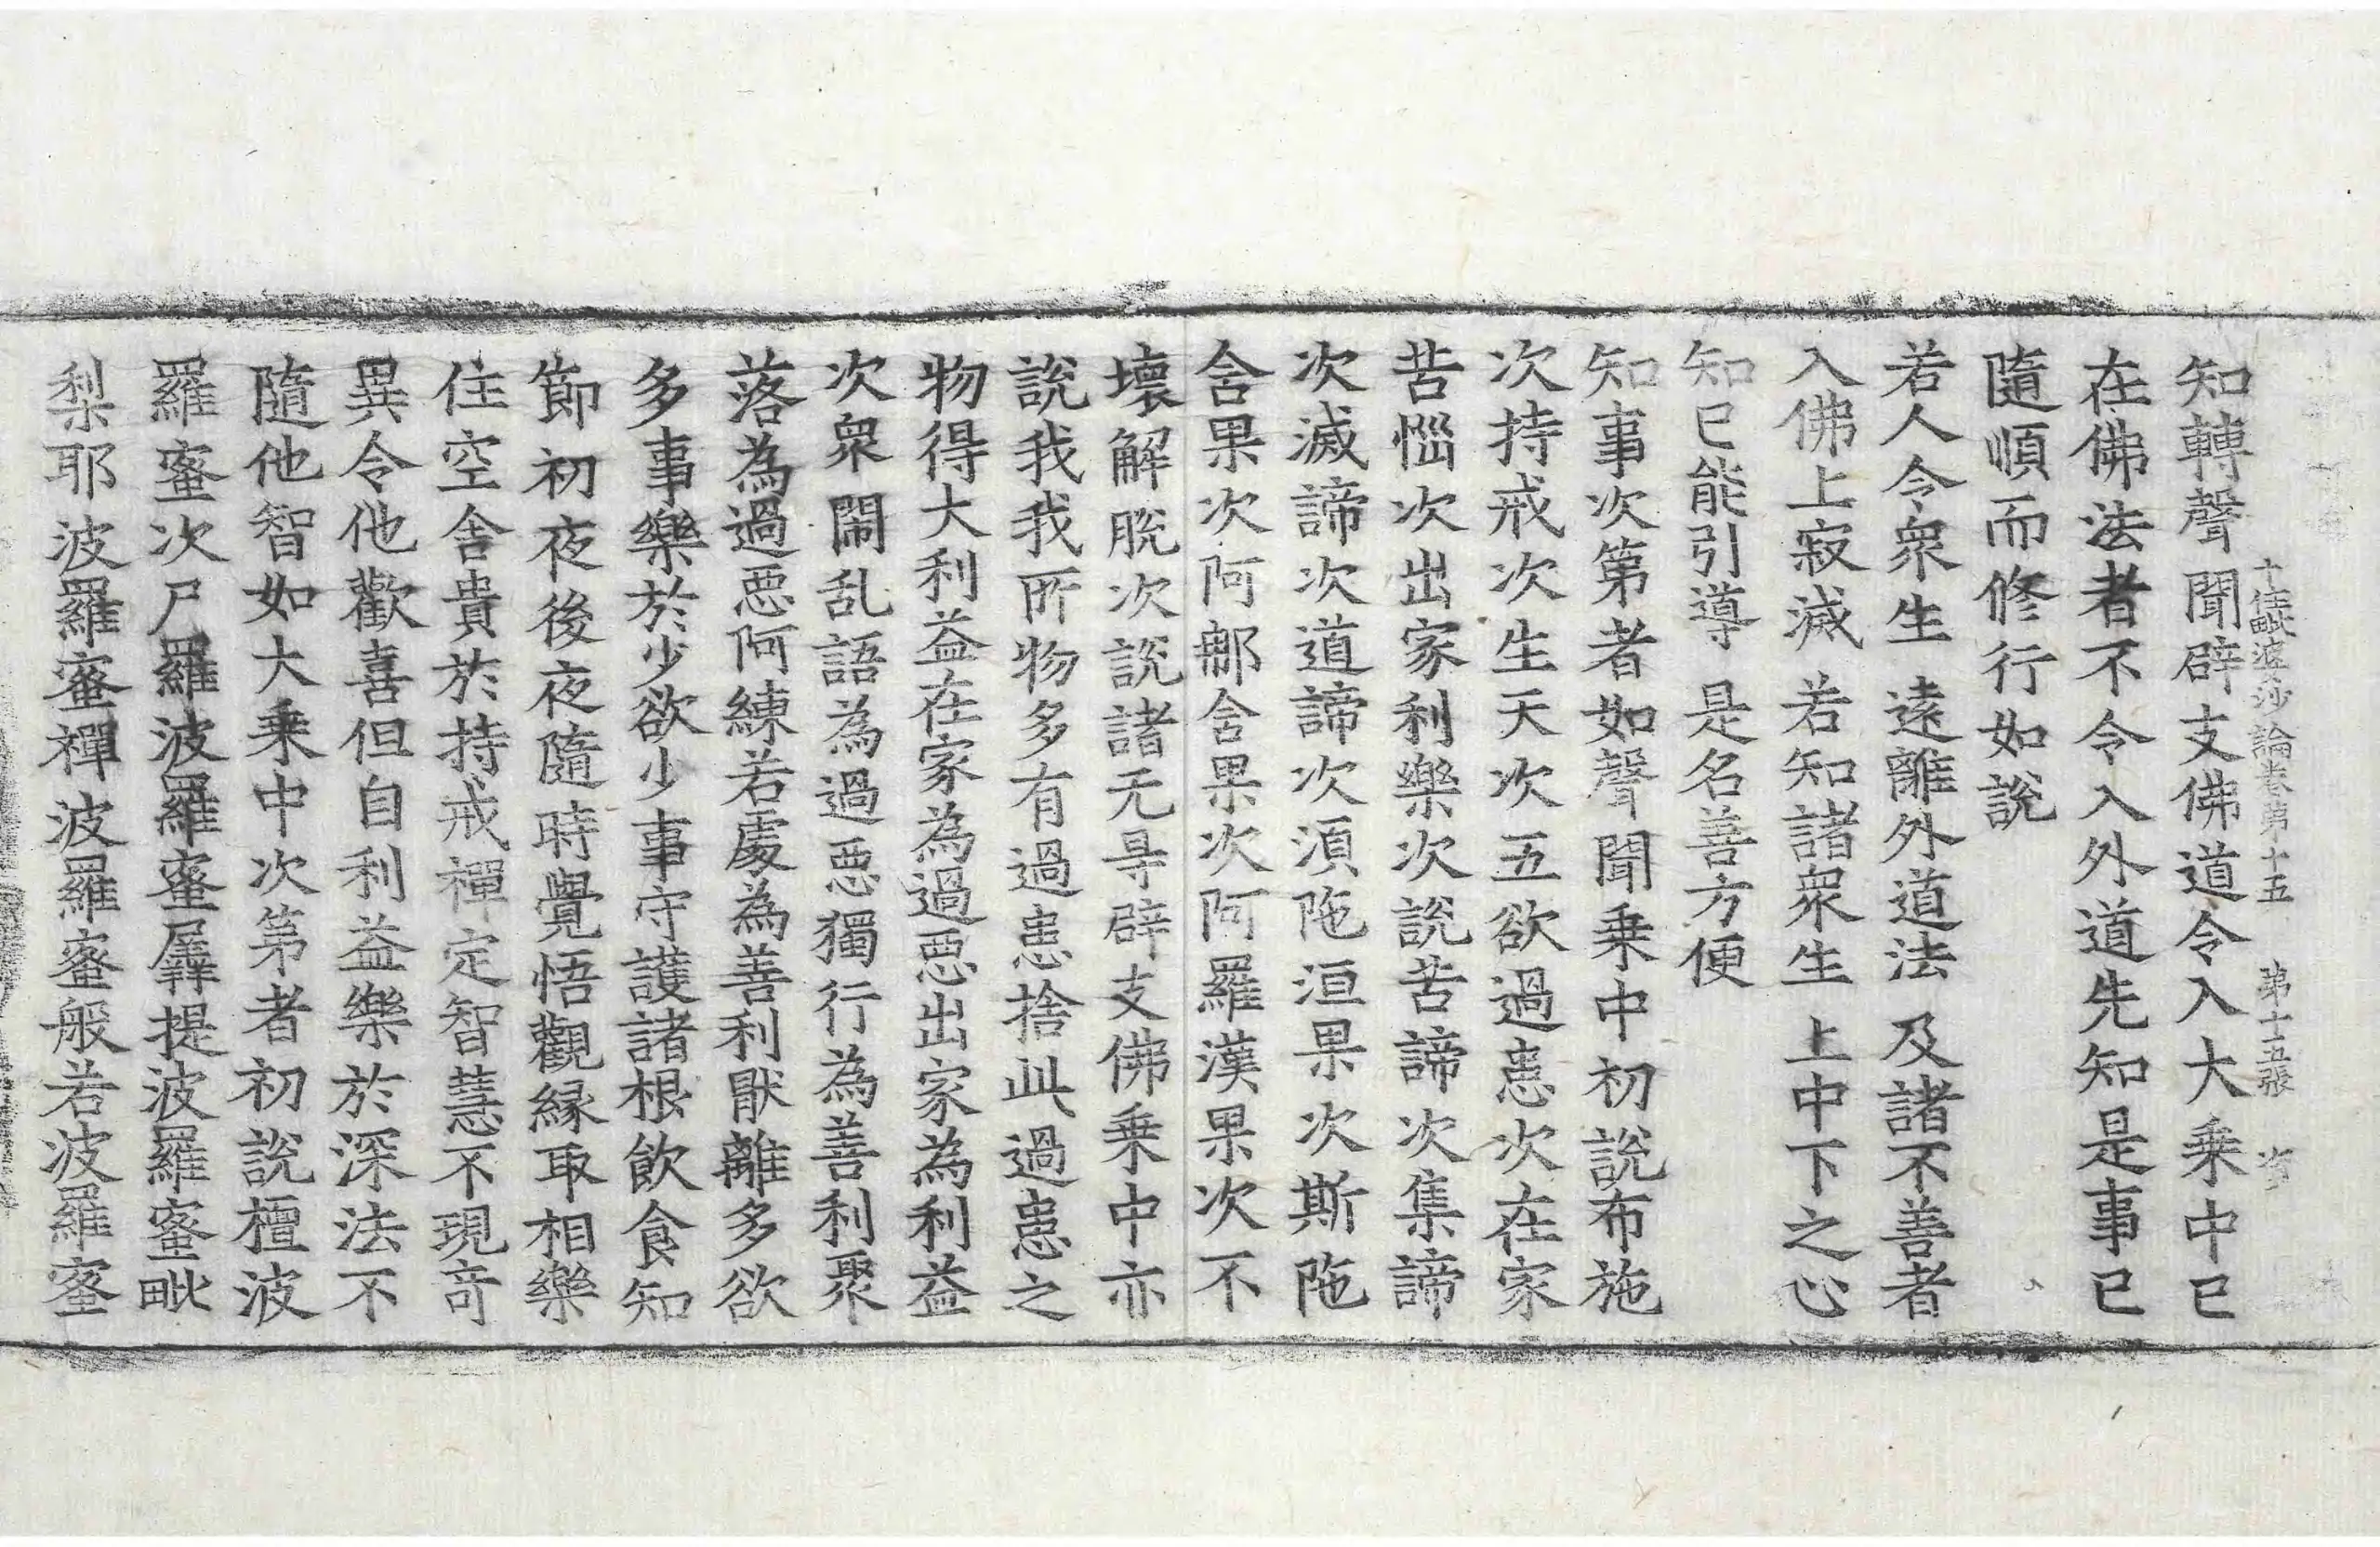 十住毗婆沙論卷第十五　第十五張
知轉聲聞辟支佛道令入大乗中已
在佛法者不令入外道先知是事已
隨順而修行如說
若人令衆生　遠離外道法　及諸不善者
入佛上寂滅　若知諸衆生　上中下之心
知已能引導　是名善方便
知事次第者如聲聞乗中初說布施
次持戒次生天次五欲過患次在家
苦惱次出家利樂次說苦諦次集諦
次滅諦次道諦次湏陁洹果次斯陁
含果次阿那含果次阿羅漢果次不
壞解脫次說諸无㝵辟支佛乗中亦
說我我所物多有過患捨此過患之
物得大利益在家為過惡出家為利益
次衆閙乱語為過惡獨行為善利聚
落為過惡阿練若處為善利猒離多欲
多事樂於少欲少事守護諸根飲食知
節初夜後夜隨時覺悟觀縁取相樂
住空舍貴於持戒禪定智慧不現奇
異令他歡喜但自利益樂於深法不
隨他智如大乗中次第者初說檀波
羅蜜次尸羅波羅蜜羼提波羅蜜毗
梨耶波羅蜜禪波羅蜜般若波羅蜜